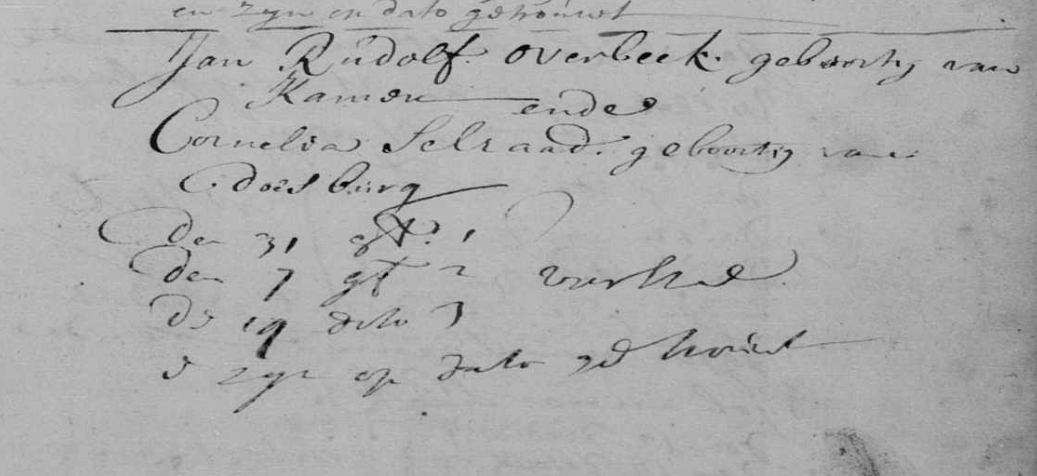 en zyn en dato getrouwt
Jan Rudolf overbeek. geboortig van
Kamen ende
Cornelia Selraad. geboortig van
doesburg
Den 31 1
den 7 2
19 dito 3
zyn op dato getrouwt